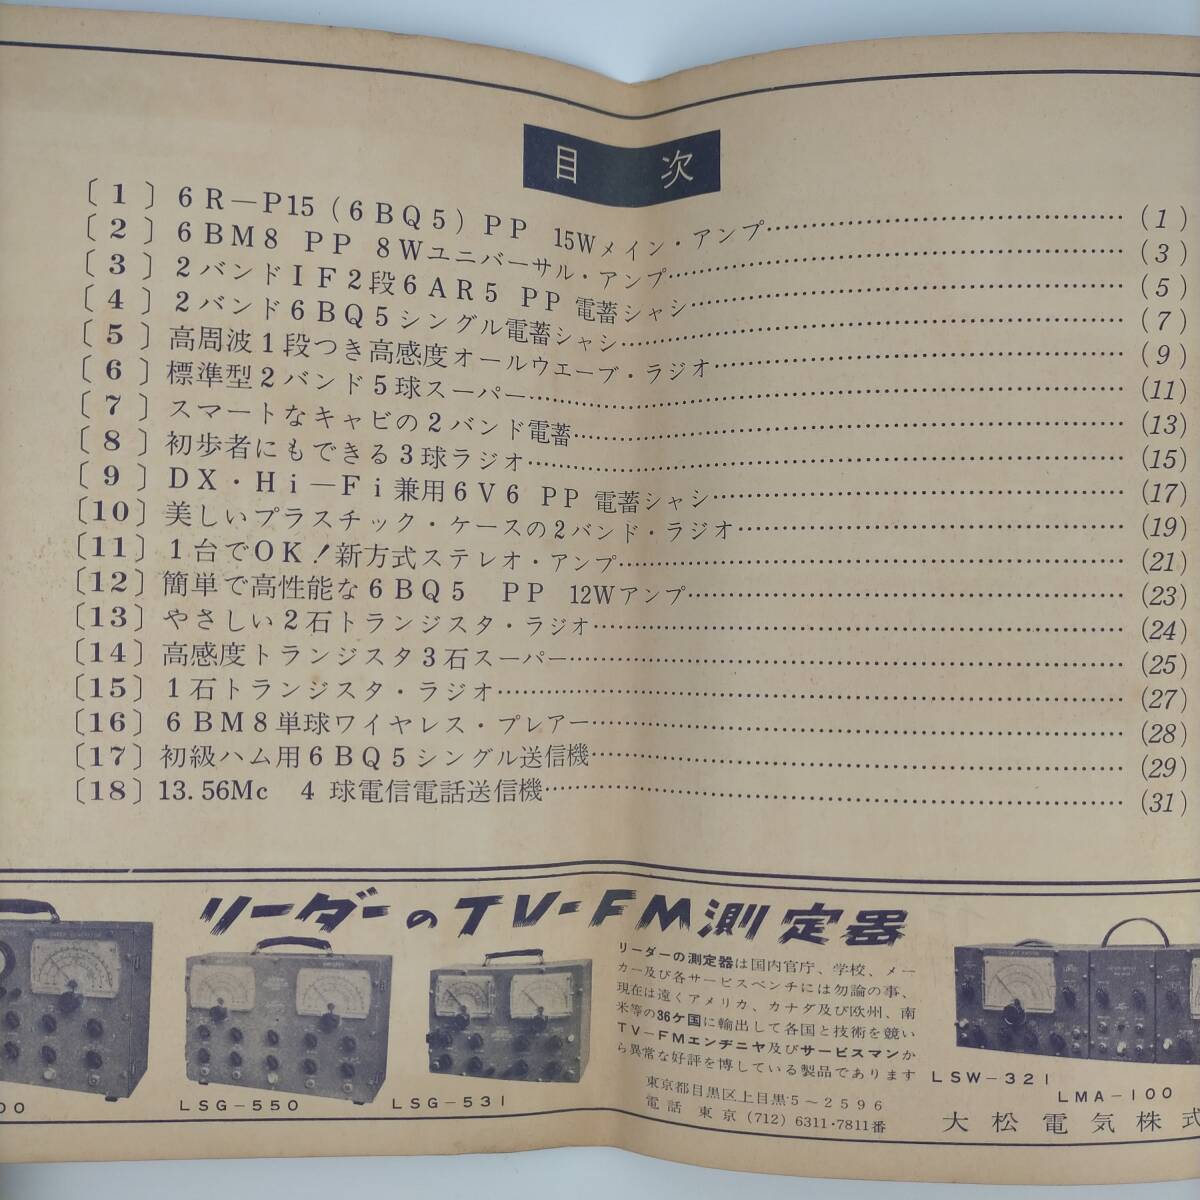 目次
〔1〕6R—P15(6BQ5)PP 15Wメイン・アンプ………(1)
〔2〕6BM8 PP 8Wユニバーサル・アンプ………(3)
〔3〕2バンドIF2段6AR5 PP 電蓄シャシ………(5)
〔4〕2バンド6BQ5シングル電蓄シャシ………(7)
〔5〕高周波1段つき高感度オールウエーブ・ラジオ………(9)
〔6〕標準型2バンド5球スーパー………(11)
〔7〕スマートなキャビの2バンド電蓄………(13)
〔8〕初歩者にもできる3球ラジオ………(15)
〔9〕DX・Hi—Fi兼用6V6 PP 電蓄シャシ………(17)
〔10〕美しいプラスチック・ケースの2バンド・ラジオ………(19)
〔11〕1台でOK!新方式ステレオ・アンプ………(21)
〔12〕簡単で高性能な6BQ5 PP 12Wアンプ………(23)
〔13〕やさしい2石トランジスタ・ラジオ………(24)
〔14〕高感度トランジスタ3石スーパー………(25)
〔15〕1石トランジスタ・ラジオ………(27)
〔16〕6BM8単球ワイヤレス・プレアー………(28)
〔17〕初級ハム用6BQ5シングル送信機………(29)
〔18〕13.56Mc 4球電信電話送信機………(31)
リーダーのTV-FM測定器
リーダーの測定器は国内官庁、学校、メー
カー及び各サービスベンチには勿論の事、
現在は遠くアメリカ、カナダ及び欧州、南
米等の36ケ国に輸出して各国と技術を競い
TV-FMエンヂニヤ及びサービスマンか
ら異常な好評を博している製品であります
東京都目黒区上目黒5〜2596
電話 東京(712)6311・7811番
00
LSG-550
LSG-531
LSW-321
LMA-100
大松電気株式